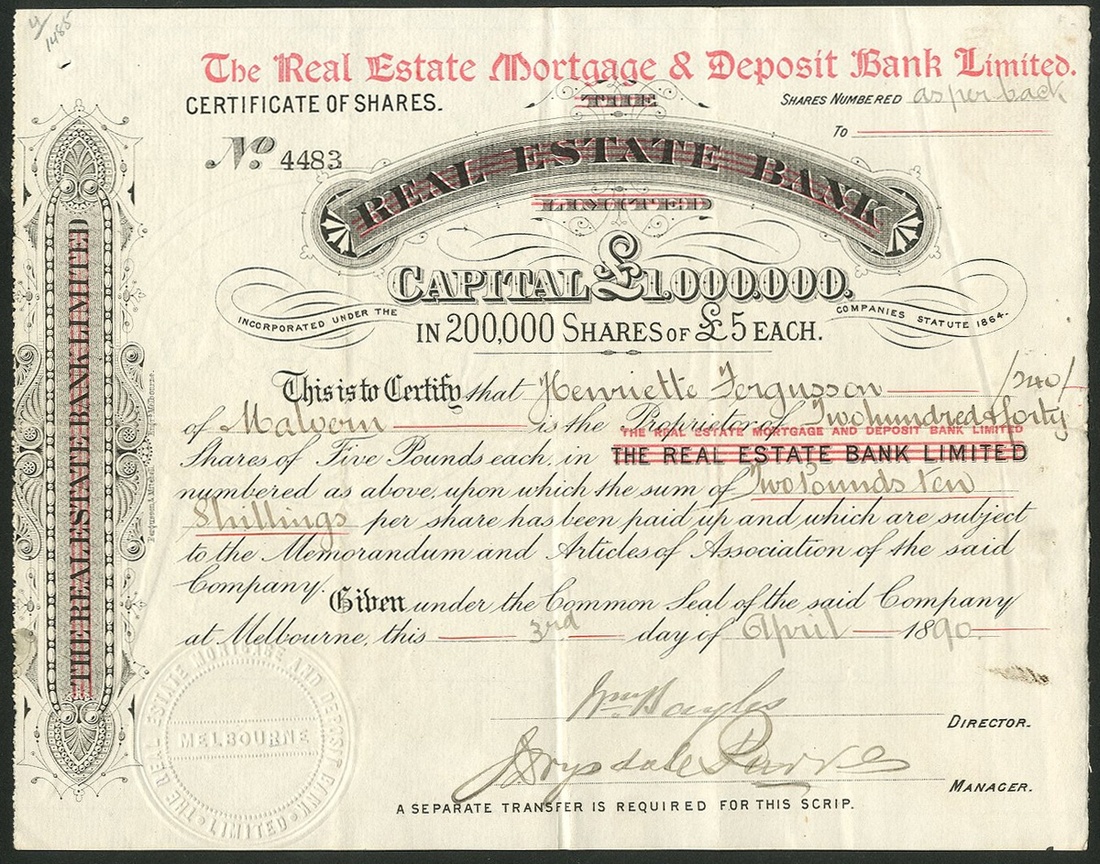 4/1485
The Real Estate Mortgage & Deposit Bank Limited.
CERTIFICATE OF SHARES.
SHARES NUMBERED as per back
To
No. 4483
THE
REAL ESTATE BANK
LIMITED
CAPITAL £1.000.000.
INCORPORATED UNDER THE COMPANIES STATUTE 1864.
IN 200,000 SHARES OF £5 EACH.
This is to Certify that Henriette Fergusson /240/
of Malvern is the Proprietor of Two hundred & forty
THE REAL ESTATE MORTGAGE AND DEPOSIT BANK LIMITED
Shares of Five Pounds each, in THE REAL ESTATE BANK LIMITED
numbered as above, upon which the sum of Two Pounds ten
Shillings per share has been paid up and which are subject
to the Memorandum and Articles of Association of the said
Company.
Given under the Common Seal of the said Company
at Melbourne, this 3rd day of April 1890.
Wm Bayles
DIRECTOR.
J Drysdale
MANAGER.
A SEPARATE TRANSFER IS REQUIRED FOR THIS SCRIP.
THE REAL ESTATE BANK LIMITED
Fergusson & Mitchell, Engrs. Melbourne.
THE REAL ESTATE MORTGAGE AND DEPOSIT BANK LIMITED
MELBOURNE